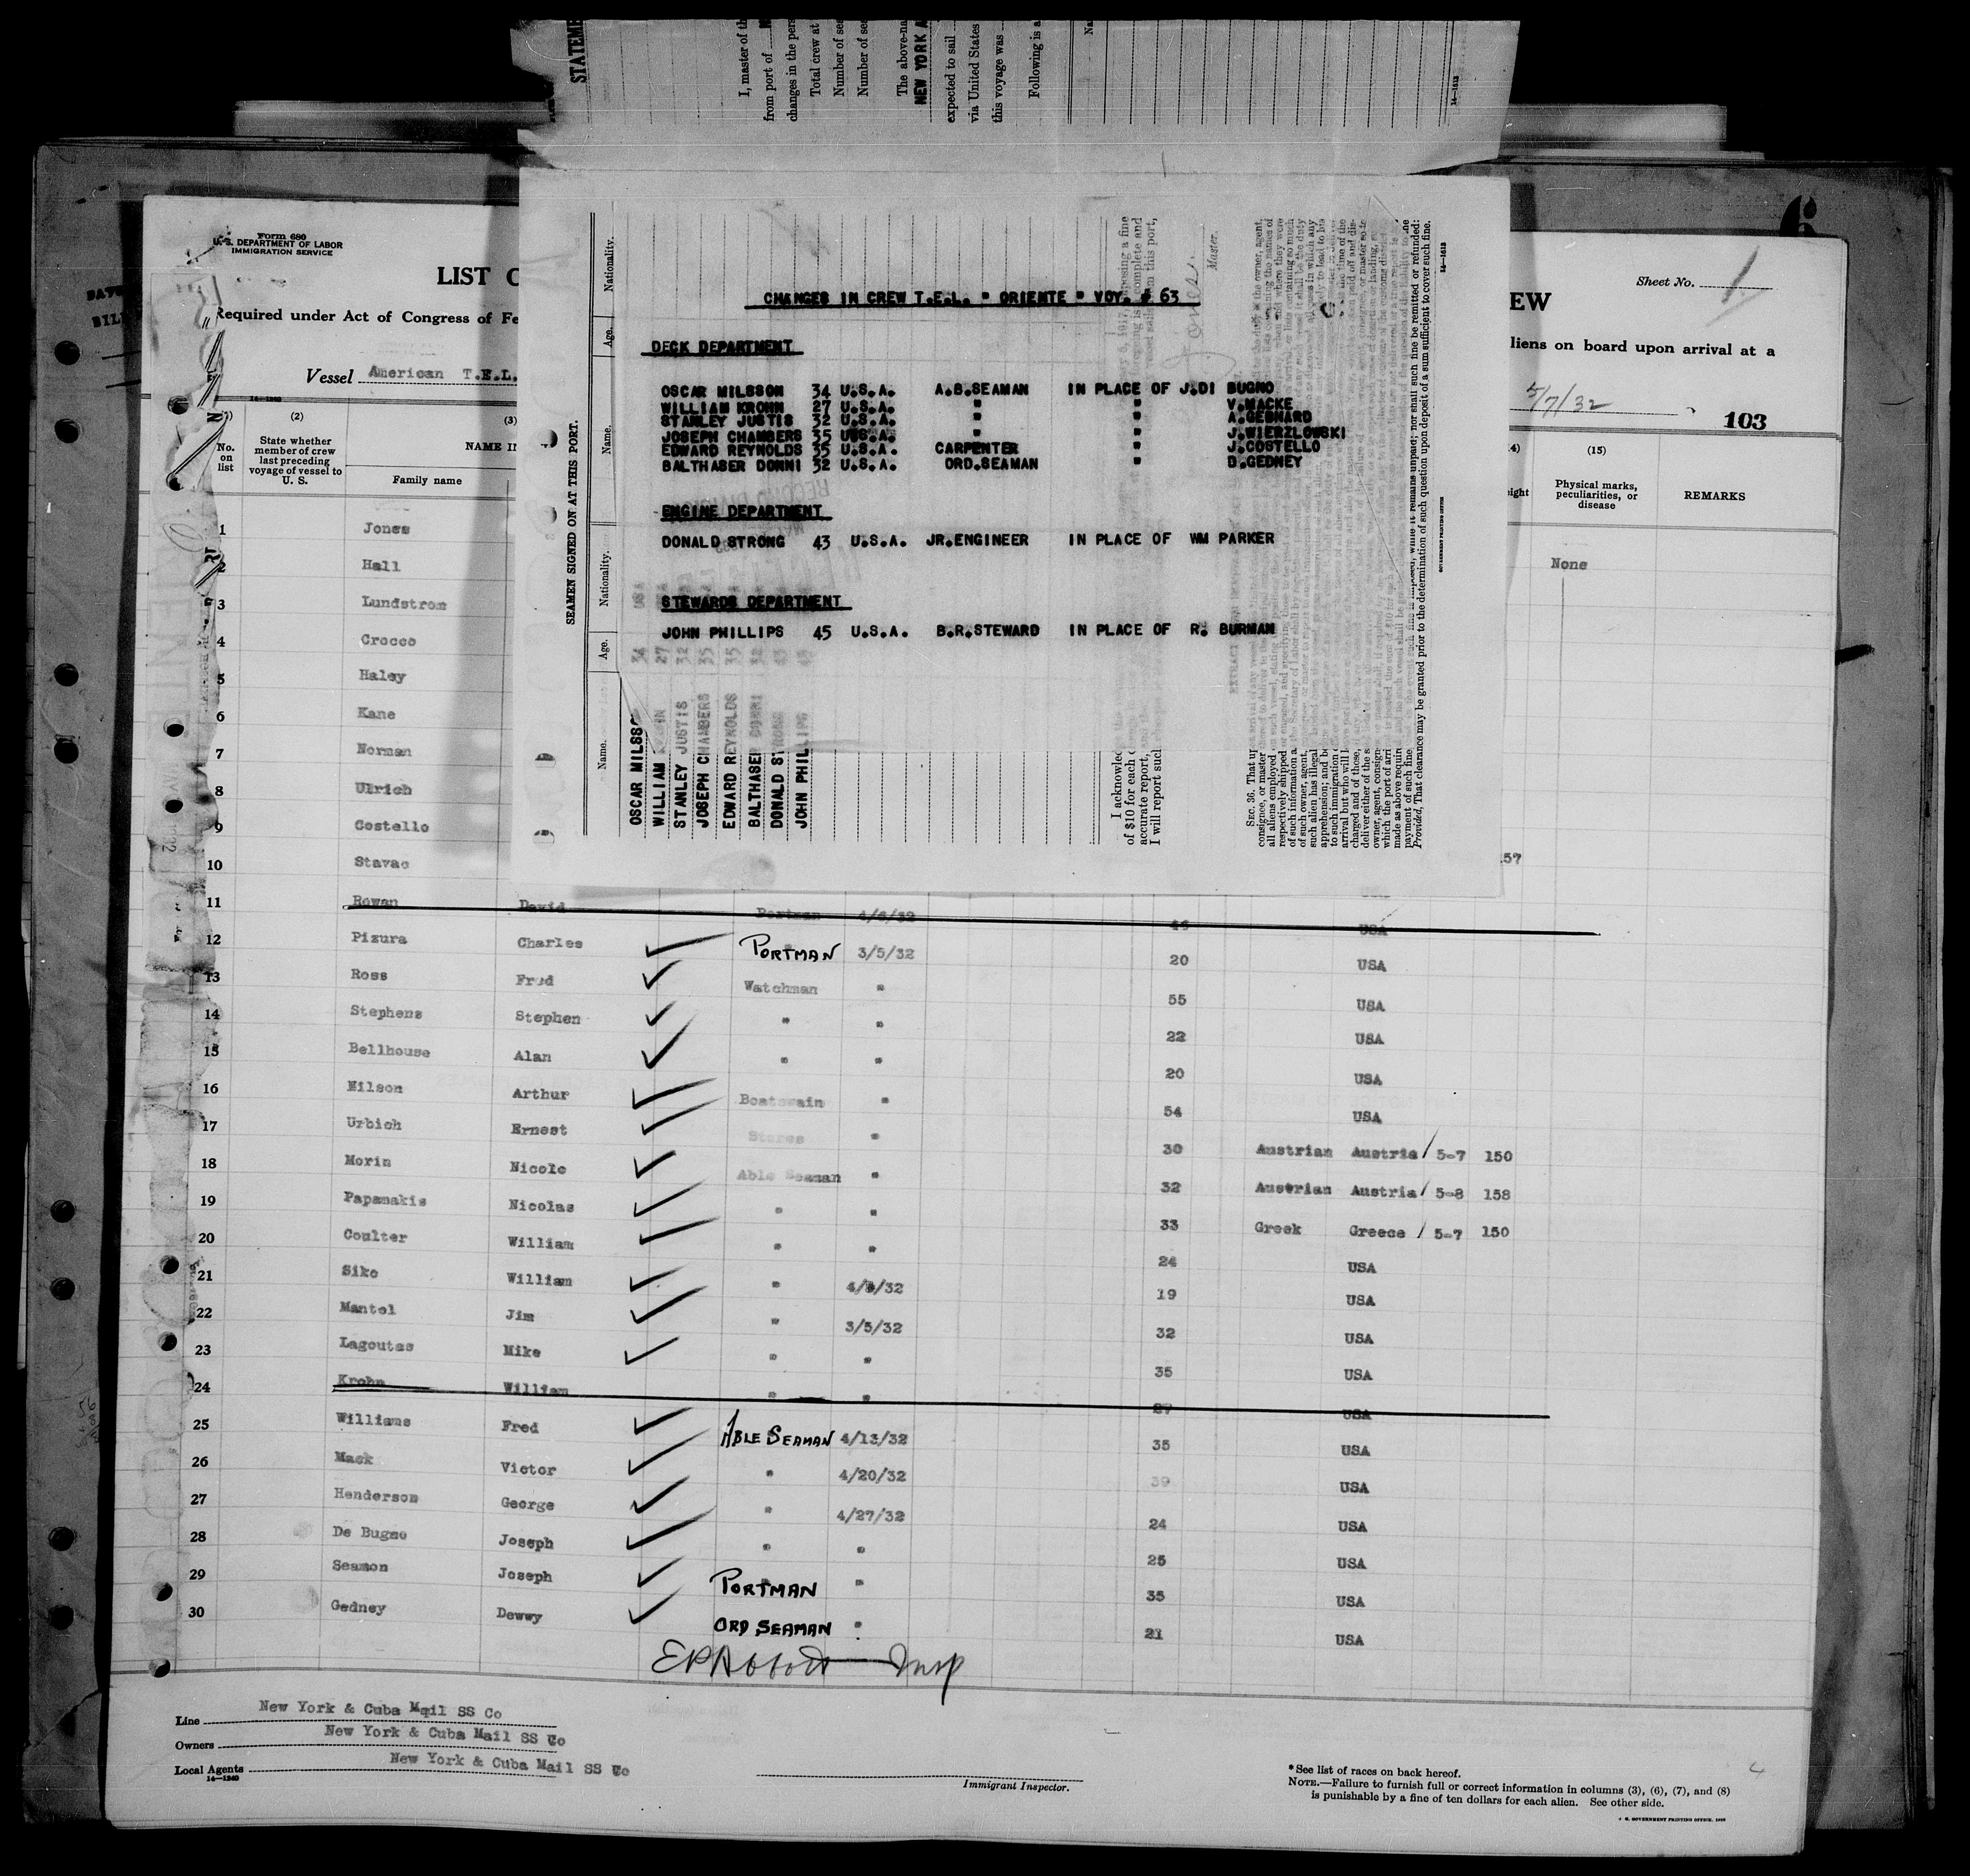 STATEME
I, master of th
from port of N
changes in the pers
Total crew at
Number of sea
Number of sea
The above-na
NEW YORK A
expected to sail
via United States
this voyage was
Following is a
14—1613
Form 680
U. S. DEPARTMENT OF LABOR
IMMIGRATION SERVICE
LIST
Required under Act of Congress of Fe
Vessel American T.E.L.
EW
Sheet No. 1
liens on board upon arrival at a
5/7/32
103
(2) (3) (15)
No. on list
State whether member of crew last preceding voyage of vessel to U. S.
NAME IN
Family name
Physical marks, peculiarities, or disease
REMARKS
SEAMEN SIGNED ON AT THIS PORT.
Name. Age. Nationality. Name. Age. Nationality.
CHANGES IN CREW T.E.L. " ORIENTE " VOY. # 63
DECK DEPARTMENT
OSCAR MILSSON 34 U.S.A. A.B.SEAMAN IN PLACE OF J.DI BUGNO
WILLIAM KROHN 27 U.S.A. " " V.MACKE
STANLEY JUSTIS 32 U.S.A. " " A.GEBHARD
JOSEPH CHAMBERS 35 U.S.A. " " J.WIERZLOWSKI
EDWARD REYNOLDS 35 U.S.A. CARPENTER " J.COSTELLO
BALTHASER DONNI 32 U.S.A. ORD.SEAMAN " D.GEDNEY
ENGINE DEPARTMENT
DONALD STRONG 43 U.S.A. JR.ENGINEER IN PLACE OF WM PARKER
STEWARDS DEPARTMENT
JOHN PHILLIPS 45 U.S.A. B.R.STEWARD IN PLACE OF R. BURMAN
OSCAR MILSSO 34
WILLIAM KROHN 27
STANLEY JUSTIS 32
JOSEPH CHAMBERS 35
EDWARD REYNOLDS 35
BALTHASER DONNI 32
DONALD STRONG 43
JOHN PHILLIPS 45
Master.
I acknowled
of $10 for each
accurate report,
I will report such
SEC. 36. That up
consignee, or master
all aliens employed
respectively shipped
of such information a
of such owner, agent,
such alien has illegal
apprehension; and
to such immigration
arrival but who will
charged and of those,
deliver either of the s
owner, agent, consign
which the port of arri
made as above requir
payment of such fine
Provided, That clearance may be granted prior to the determination of such question upon deposit of a sum sufficient to cover such fine.
14—1613
1 Jones
2 Hall None
3 Lundstrom
4 Crocco
5 Haley
6 Kane
7 Norman
8 Ulrich
9 Costello
10 Stavac 157
11 Rowan David Portman 4/6/32 USA
12 Pizura Charles PORTMAN 3/5/32 20 USA
13 Ross Fred Watchman " 55 USA
14 Stephens Stephen " " 22 USA
15 Bellhouse Alan " " 20 USA
16 Nilson Arthur Boatswain " 54 USA
17 Urbich Ernest Stores " 30 Austrian Austria 5-7 150
18 Morin Nicolo Able Seaman " 32 Austrian Austria 5-8 158
19 Papanakis Nicolas " " 33 Greek Greece 5-7 150
20 Coulter William " " 24 USA
21 Siko William " 4/8/32 19 USA
22 Mantel Jim " 3/5/32 32 USA
23 Lagoutas Mike " " 35 USA
24 Krohn William " " 27 USA
25 Williams Fred ABLE SEAMAN 4/13/32 35 USA
26 Mack Victor " 4/20/32 39 USA
27 Henderson George " 4/27/32 24 USA
28 De Bugno Joseph " " 25 USA
29 Seamon Joseph PORTMAN " 35 USA
30 Gedney Dewwy ORD SEAMAN " 21 USA
EP Abbott Insp
Line New York & Cuba Mail SS Co
Owners New York & Cuba Mail SS Co
Local Agents New York & Cuba Mail SS Co
14—1240
Immigrant Inspector.
* See list of races on back hereof.
NOTE.—Failure to furnish full or correct information in columns (3), (6), (7), and (8)
is punishable by a fine of ten dollars for each alien. See other side.
U. S. GOVERNMENT PRINTING OFFICE